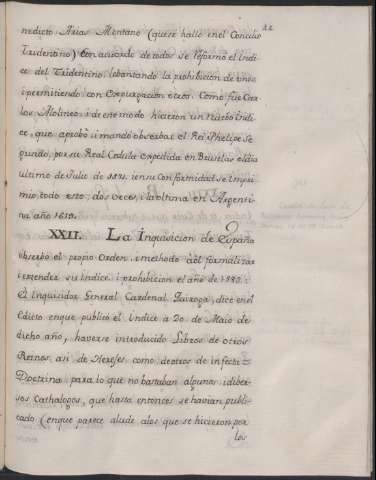 nedicto Arias Montano (que se hallò en el Concilio
Tridentino) con acuerdo de todos se reformò el Indi-
ce del Tridentino, lebantando la prohibicion de unos
i permitiendo con Expurgacion otros. Como fue Car-
los Molineo; i de este modo hicieron un nuebo Indi-
ce, que aprobò i mandò obserbar el Rei Phelipe Se
gundo, por su Real Cedula expedida en Bruselas el dia
ultimo de Julio de i en su conformidad se impri-
miò todo esto dos veces, la ultima en Argenti-
na año 1610.
XXII. La Inquisicion de España
obserbò el propio orden, i methodo àl formalizar
i extender su Indice i prohibicion el año de 1583.
El Inquisidor General Cardenal Quiroga, dice en el
Edicto en que publicò el Indice a 20 de Maio de
dicho año, haverse introducido Libros de otros
Reinos, asi de Herejes como de otros de infecta
Doctrina para lo que no bastaban algunos i diber-
sos Cathalogos, que hasta entonces se havian publi-
cado (en que parece alude a los que se hicieron por
los